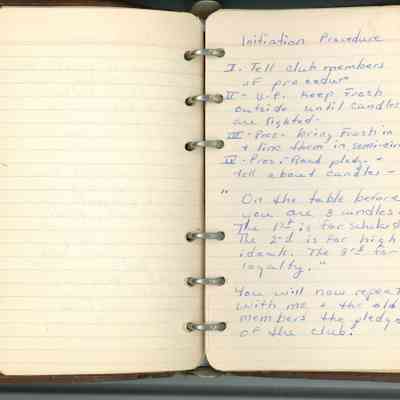 Initiation Procedure
I. Tell club members
of procedur
II - V.P. keep Frosh
outside until candles
are lighted.
III - Pres - bring Frosh in
+ line them in semi-cir
IV - Pres - Read pledg. +
tell about candles -
" On the table before
you are 3 candles.
The 1st is for scholarsh
The 2nd is for high
ideals. The 3rd for
loyalty."
You will now repeat
with me + the old
members the pledge
of the club: